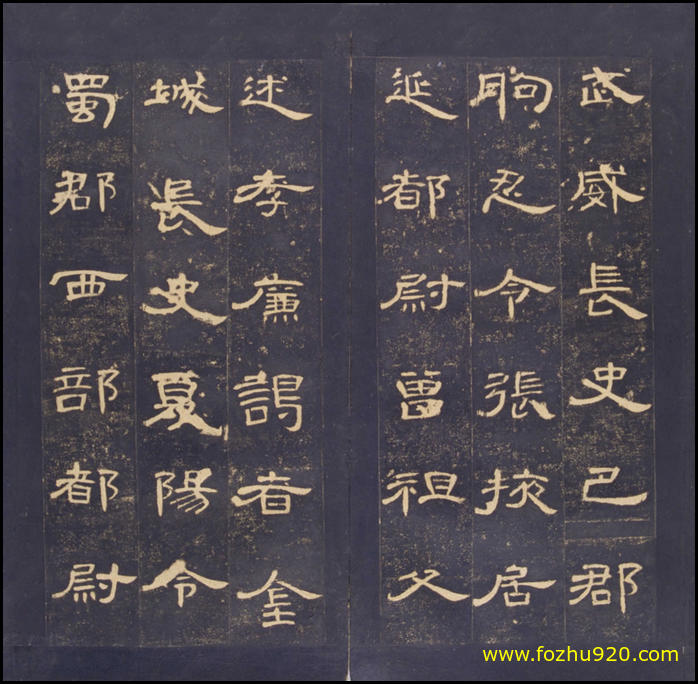 武威長史巴郡
朐忍令張掖居
延都尉曾祖父
述孝廉謁者金
城長史夏陽令
蜀郡西部都尉
www.fozhu920.com